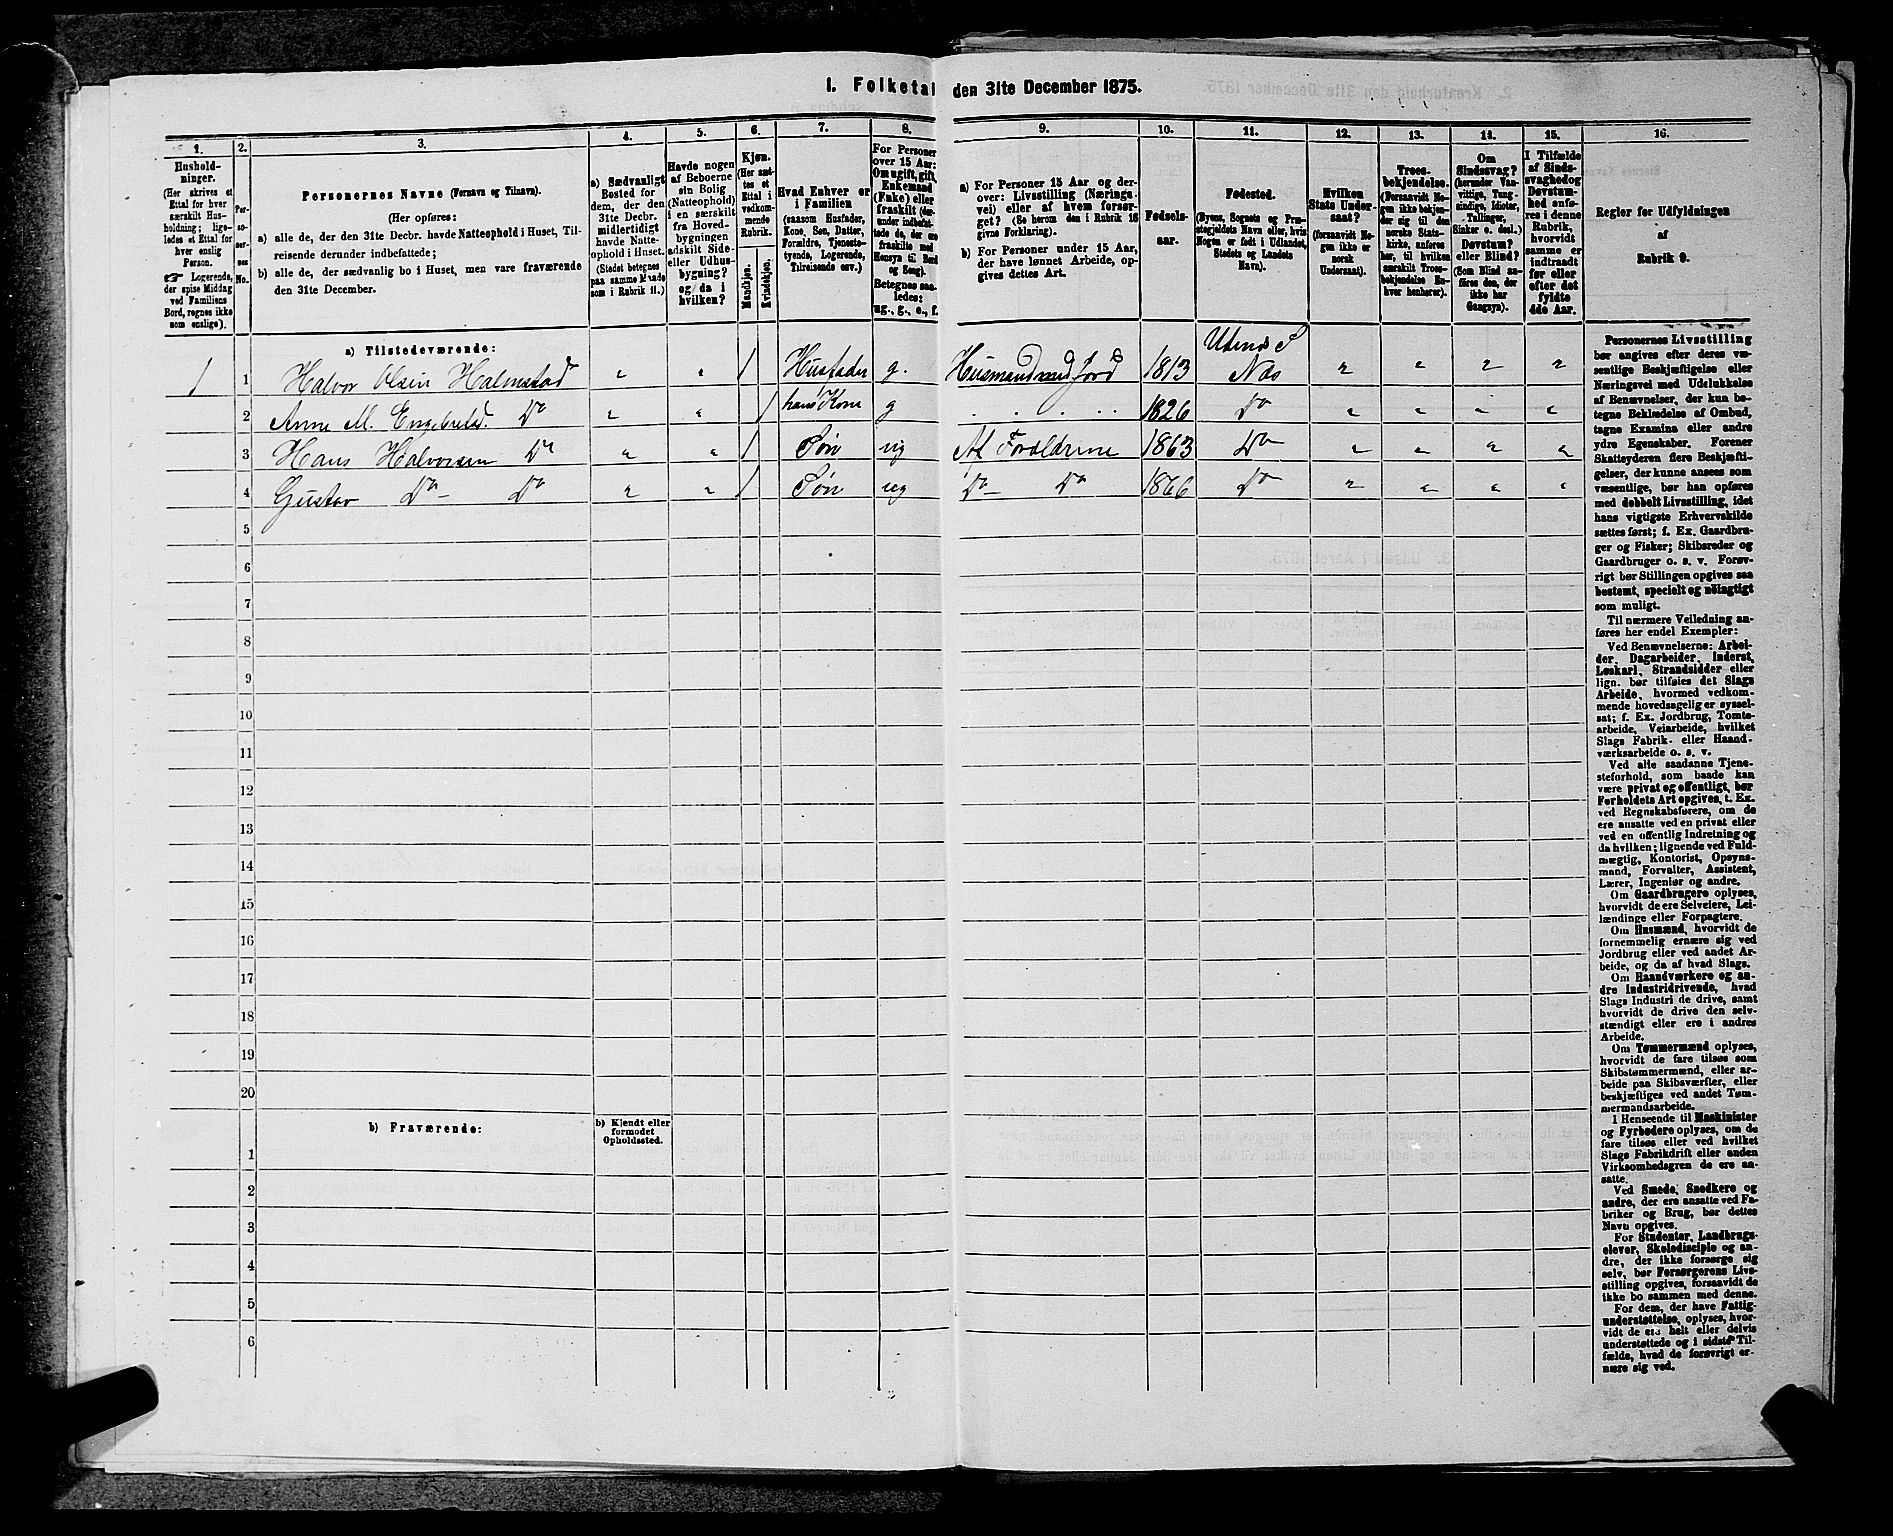 1. Folketal den 31te December 1875.
1. 2. 3. 4. 5. 6. 7. 8. 9. 10. 11. 12. 13. 14. 15. 16.
Hushold-
ninger.
(Her skrives et
Ettal for hver
særskilt Hus-
holdning; lige-
ledes et Ettal for
hver enslig
Person.
☞ Logerende,
der spise Middag
ved Familiens
Bord, regnes ikke
som enslige).
Per-
so-
ner-
nes
No.
Personernes Navne (Fornavn og Tilnavn).
(Her opføres:
a) alle de, der den 31te Decbr. havde Natteophold i Huset, Til-
reisende derunder indbefattede;
b) alle de, der sædvanlig bo i Huset, men vare fraværende
den 31te December.
a) Sædvanligt
Bosted for
dem, der den
31te Decbr.
midlertidigt
havde Natte-
ophold i Huset.
(Stedet betegnes
paa samme Maade
som i Rubrik 11.)
Havde nogen
af Beboerne
sin Bolig
(Natteophold)
i en særskilt
fra Hoved-
bygningen
adskilt Side-
eller Udhus-
bygning?
og da i
hvilken?
Kjøn.
(Her sæt-
tes et
Ettal i
vedkom-
mende
Rubrik.
Mandkjøn.
Kvindekjøn.
Hvad Enhver er
i Familien
(saasom Husfader,
Kone, Søn, Datter,
Forældre, Tjeneste-
tyende, Logerende,
Tilreisende osv.)
For Personer
over 15 Aar:
Om ugift, gift,
Enkemand
(Enke) eller
fraskilt
Betegnes saa-
ledes:
ug., g., e., f.
a) For Personer 15 Aar og der-
over: Livsstilling (Nærings-
vei) eller af hvem forsør-
get? (Se herom den i Rubrik 16
givne Forklaring).
b) For Personer under 15 Aar,
der have lønnet Arbeide, op-
gives dettes Art.
Fødsels-
aar.
Fødested.
(Byens, Sognets og Præ-
stegjeldets Navn eller, hvis
Nogen er født i Udlandet,
Stedets og Landets
Navn).
Hvilken
Stats Under-
saat?
(forsaavidt No-
gen ikke er
norsk
Undersaat).
Troes-
bekjendelse.
(Forsaavidt No-
gen ikke bekjen-
der sig til den
norske Stats-
kirke, anføres
her, til hvilken
særskilt Troes-
bekjendelse En-
hver henhører).
Om
Sindssvag?
(herunder Van-
vittige, Tung-
sindige, Idioter,
Tullinger,
Sinker o. desl.)
Døvstum?
eller Blind?
(Som Blind an-
føres den, der
ikke har
Gangsyn).
I Tilfælde
af Sinds-
svaghed og
Døvstum-
hed anfø-
res i denne
Rubrik,
hvorvidt
samme er
indtraadt
før eller
efter det
fyldte
4de Aar.
Regler for Udfyldningen
af
Rubrik 9.
a) Tilstedeværende:
1 1 Halvor Olsen Halmstad " " 1 Husfader g. Husmand med Jord 1813 Næs " " " "
2 Anne M. Engebretsd. Do " " 1 hans Kone g . . . . . 1826 Do " " " "
3 Hans Halvorsen Do " " 1 Søn ug Af Forældrene 1863 Do " " " "
4 Gustav Do Do " " 1 Søn ug Do Do 1866 Do " " " "
5
6
7
8
9
10
11
12
13
14
15
16
17
18
19
20
b) Fraværende:
b) Kjendt eller
formodet
Opholdssted.
1
2
3
4
5
6
Personernes Livsstilling
bør angives efter deres væ-
sentlige Beskjæftigelse eller
Næringsvei med Udelukkelse
af Benævnelser, der kun be-
tegne Beklædelse af Ombud,
tagne Examina eller andre
ydre Egenskaber. Forener
Skatteyderen flere Beskjæfti-
gelser, der kunne ansees som
væsentlige, bør han opføres
med dobbelt Livsstilling, idet
hans vigtigste Erhvervskilde
sættes først; f. Ex. Gaardbru-
ger og Fisker; Skibsreder og
Gaardbruger o. s. v. Forøv-
rigt bør Stillingen opgives saa
bestemt, specielt og nöiagtigt
som muligt.
Til nærmere Veiledning an-
føres her endel Exempler:
Ved Benævnelserne: Arbei-
der, Dagarbeider, Inderst,
Løskarl, Strandsidder eller
lign. bør tilføies det Slags
Arbeide, hvormed vedkom-
mende hovedsagelig er syssel-
sat; f. Ex. Jordbrug, Tomte-
arbeide, Veiarbeide, hvilket
Slags Fabrik- eller Haand-
værksarbeide o. s. v.
Ved alle saadanne Tjene-
steforhold, som baade kan
være privat og offentligt, bør
Forholdets Art opgives, t. Ex.
ved Regnskabsførere, om de
ere ansatte ved en privat eller
ved en offentlig Indretning og
da hvilken; lignende ved Fuld-
mægtig, Kontorist, Opsyns-
mand, Forvalter, Assistent,
Lærer, Ingeniør og andre.
Om Gaardbrugere oplyses,
hvorvidt de ere Selveiere, Lei-
lændinge eller Forpagtere.
Om Husmænd, hvorvidt de
fornemmelig ernære sig ved
Jordbrug eller ved andet Ar-
beide, og da af hvad Slags.
Om Haandværkere og an-
dre Industridrivende, hvad
Slags Industri de drive, samt
hvorvidt de drive den selv-
stændigt eller ere i andres
Arbeide.
Om Tømmermænd oplyses,
hvorvidt de fare tilsøs som
Skibstømmermænd, eller ar-
beide paa Skibsværfter, eller
beskjæftiges ved andet Tøm-
mermandsarbeide.
I Henseende til Maskinister
og Fyrbødere oplyses, om de
fare tilsøs eller ved hvilket
Slags Fabrikdrift eller anden
Virksomhedsgren de ere an-
satte.
Ved Smede, Snedkere og
andre, der ere ansatte ved Fa-
briker og Brug, bør dettes
Navn opgives.
For Studenter, Landbrugs-
elever, Skoledisciple og an-
dre, der ikke forsørge sig
selv, bør Forsørgerens Livs-
stilling opgives, forsaavidt de
ikke bo sammen med denne.
For dem, der have Fattig-
understøttelse, oplyses, hvor-
vidt de ere helt eller delvis
understøttede og i sidste Til-
fælde, hvad de forøvrigt er-
nære sig ved.